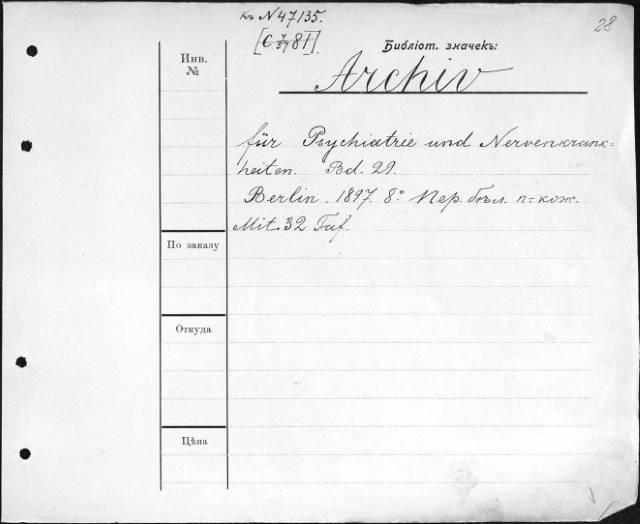 къ N 47135.
28
Библіот. значекъ:
Инв.
№
Archiv
für Psychiatrie und Nervenkrank=
heiten. Bd. 29.
Berlin. 1897. 8° Пер. бѣл. п-кож.
Mit 32 Taf.
По заказу
Откуда
Цѣна